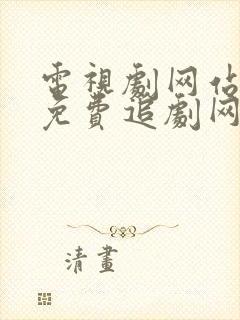 電視劇网佔
免費追劇网
清畫